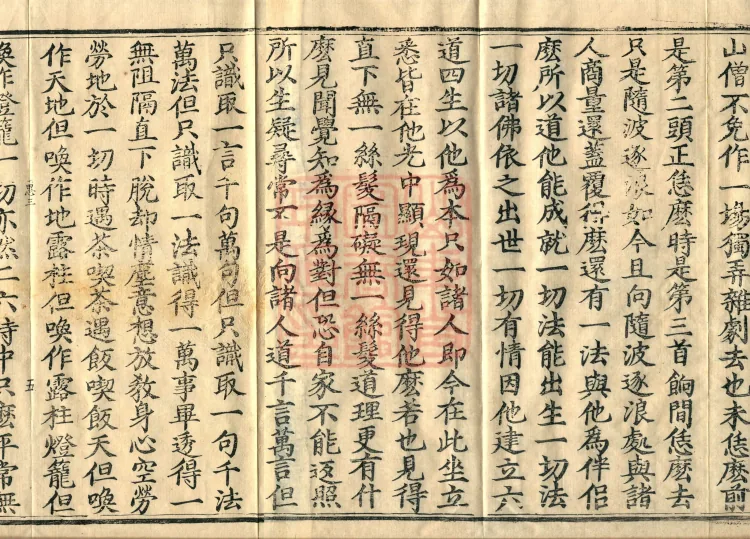 山僧不免作一場獨弄雜劇去也未恁麽前
是第二頭正恁麽時是第三首餉間恁麽去
只是隨波逐浪如今且向隨波逐浪處與諸
人商量還蓋覆得麽還有一法與他爲伴侶
麽所以道他能成就一切法能出生一切法
一切諸佛依之出世一切有情因他建立六
道四生以他爲本只如諸人即今在此坐立
悉皆在他光中顯現還見得他麽若也見得
直下無一絲髮隔礙無一絲髮道理更有什
麽見聞覺知爲緣爲對但恐自家不能返照
所以生疑尋常不是向諸人道千言萬言但
只識取一言千句萬句但只識取一句千法
萬法但只識取一法識得一萬事畢透得一
無阻隔直下脫却情塵意想放教身心空勞
勞地於一切時遇茶喫茶遇飯喫飯天但喚
作天地但喚作地露柱但喚作露柱燈籠但
悤三
五
喚作燈籠一切亦然二六時中只麽平常無